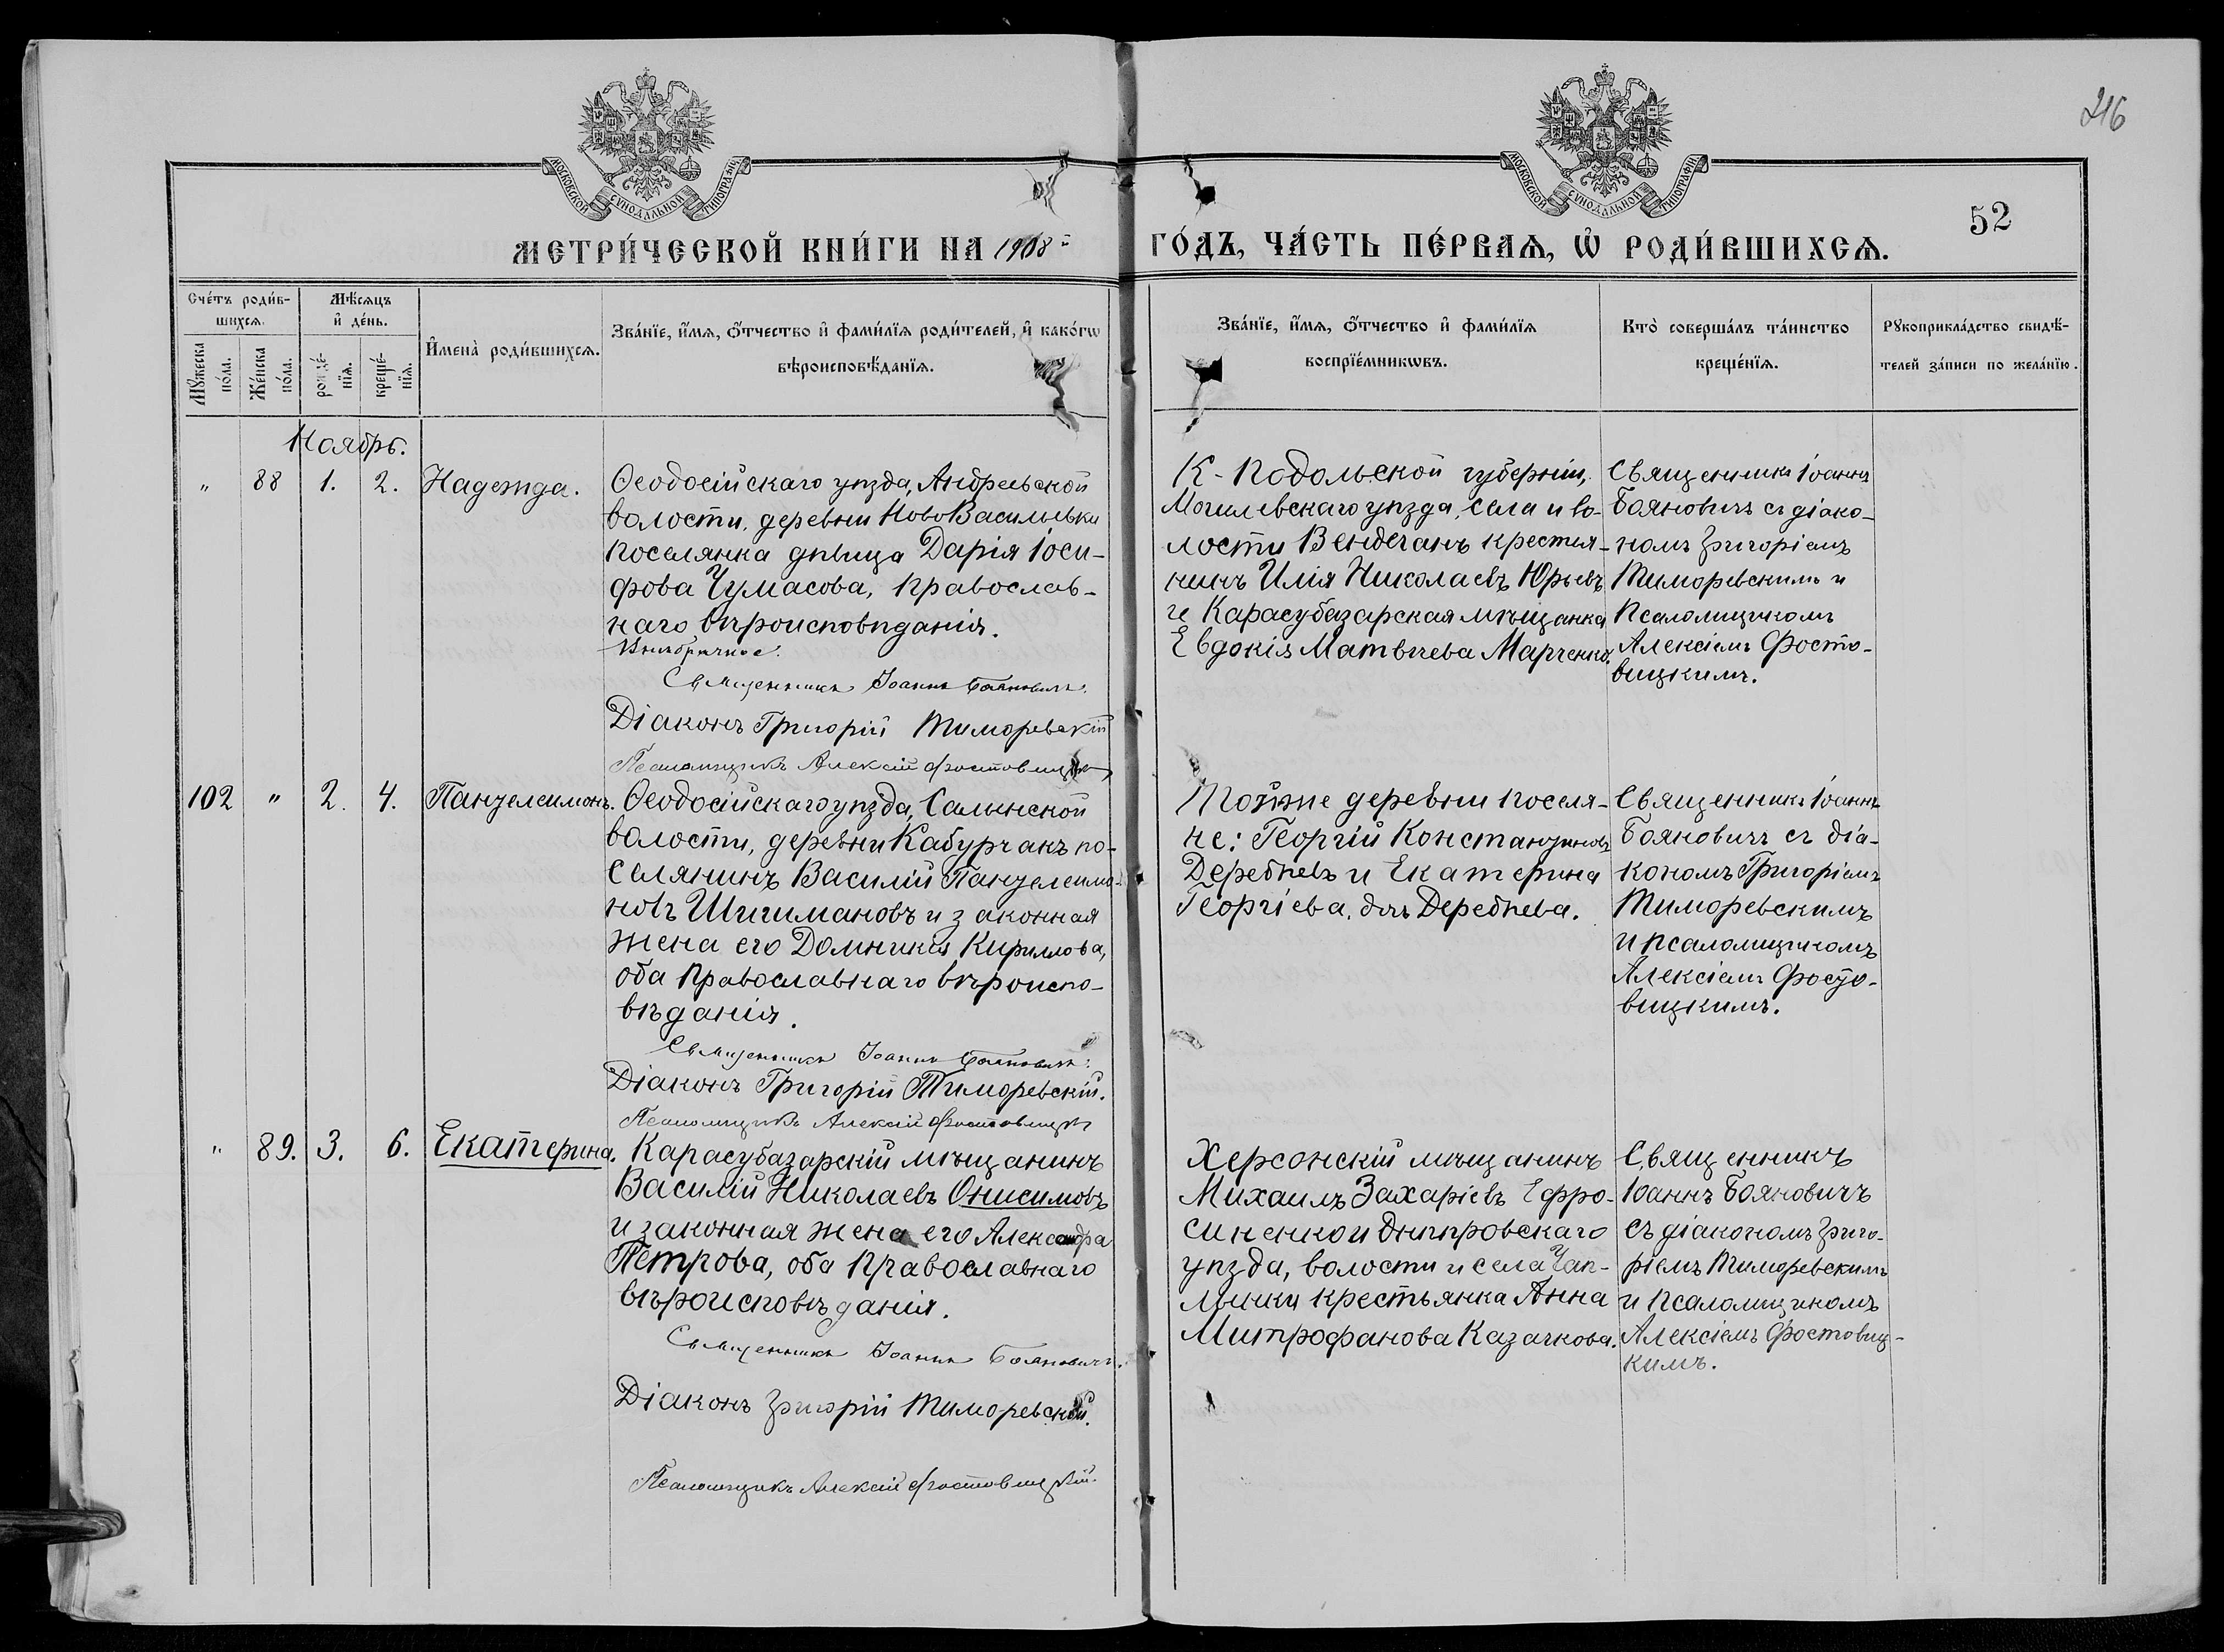 216
МОСКОВСКОЙ СѴНОДАЛЬНОЙ ТИПОГРАФІИ
МОСКОВСКОЙ СѴНОДАЛЬНОЙ ТИПОГРАФІИ
52
МЕТРИ́ЧЕСКОЙ КНИ́ГИ НА 1908й
ГО́ДЪ, ЧА́СТЬ ПЕ́РВАѦ, Ѡ҆ РОДИ́ВШИХСѦ.
Сче́тъ роди́в-
шихсѧ.
Мѣ́сѧцъ
и҆ де́нь.
Мꙋ́жеска
по́ла.
Же́нска
по́ла.
рожде́-
нїѧ.
креще́-
нїѧ.
И҆мена̀ роди́вшихсѧ.
Зва́нїе, и҆́мѧ, ѻ҆́тчество и҆ фами́лїѧ роди́телей, и҆ како́гѡ
вѣроисповѣ́данїѧ.
Зва́нїе, и҆́мѧ, ѻ҆́тчество и҆ фами́лїѧ
воспрїе́мникѡвъ.
Кто̀ соверша́лъ та́инство
креще́нїѧ.
Рꙋкоприкла́дство свидѣ́-
телей за́писи по жела́нїю.
Ноябрь.
" 88 1. 2. Надежда.
Ѳеодосійскаго уѣзда, Андреевской
волости, деревни НовоВасильевки
поселянка дѣвица Дарія Іоси-
фова Чумасова, православ-
наго вѣроисповѣданія.
Внѣбрачное.
Священникъ Іоаннъ Бояновичъ.
Діаконъ Григорій Тиморевскій
Псаломщикъ Алексій Фостовицкій
К-Подольской губерніи,
Могилевскаго уѣзда, села и во-
лости Вендечанъ крестья-
нинъ Илія Николаевъ Юрьевъ
и Карасубазарская мѣщанка
Евдокія Матвѣева Марченко.
Священникъ Іоаннъ
Бояновичъ съ діако-
номъ Григоріемъ
Тиморевскимъ и
псаломщикомъ
Алексіемъ Фосто-
вицкимъ.
102 " 2. 4. Пантелеимонъ.
Ѳеодосійскаго уѣзда, Салынской
волости, деревни Кабурчакъ по-
селянинъ Василій Пантелеимо-
новъ Шишмановъ и законная
жена его Домникія Кириллова,
оба православнаго вѣроиспо-
вѣданія.
Священникъ Іоаннъ Бояновичъ.
Діаконъ Григорій Тиморевскій.
Псаломщикъ Алексій Фостовицкій
Тойже деревни поселя-
не: Георгій Константиновъ
и Екатерина
Георгіева, дочь
Священникъ Іоаннъ
Бояновичъ съ діа-
кономъ Григоріемъ
Тиморевскимъ
и псаломщикомъ
Алексіемъ Фосто-
вицкимъ.
" 89. 3. 6. Екатерина.
Карасубазарскій мѣщанинъ
Василій Николаевъ Онисимовъ
и законная жена его Александра
Петрова, оба православнаго
вѣроисповѣданія.
Священникъ Іоаннъ Бояновичъ.
Діаконъ Григорій Тиморевскій.
Псаломщикъ Алексій Фостовицкій.
Херсонскій мѣщанинъ
Михаилъ Захаріевъ Ефро-
синенко и Днѣпровскаго
уѣзда, волости и села Чап-
лынки крестьянка Анна
Митрофанова Казачкова.
Священникъ
Іоаннъ Бояновичъ
съ діакономъ Григо-
ріемъ Тиморевскимъ
и псаломщикомъ
Алексіемъ Фостовиц-
кимъ.